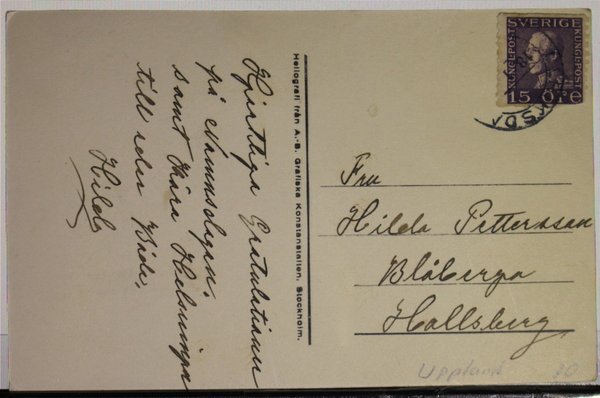 Hjärtliga Gratulationer
på Namnsdagen.
samt Kära Helsningar
till eder Båda.
Hild
Heliografi från A.-B. Grafiska Konstanstalten, Stockholm.
SVERIGE
KUNGLPOST
KUNGLPOST
15 ÖRE
Fru
Hilda Pettersson
Blåberga
Hallsberg
Uppland